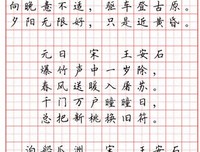 向晚意不适，驱车登古原。
夕阳无限好，只是近黄昏。
元日 宋 王安石
爆竹声中一岁除，
春风送暖入屠苏。
千门万户曈曈日，
总把新桃换旧符。
泊船瓜洲 宋 王安石